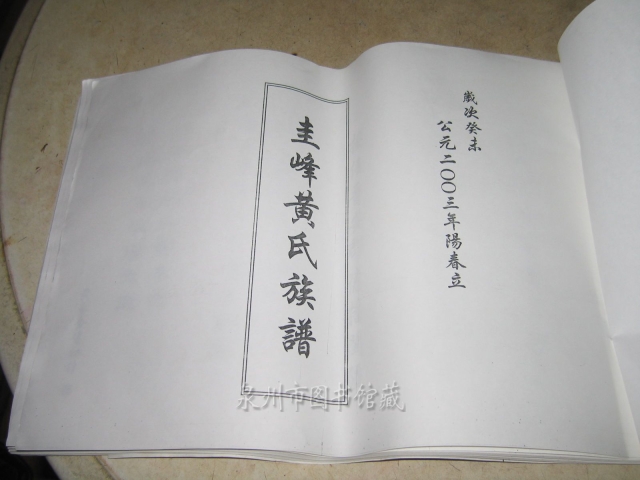 歲次癸未
公元二〇〇三年陽春立
圭峰黃氏族譜
泉州市图书馆藏